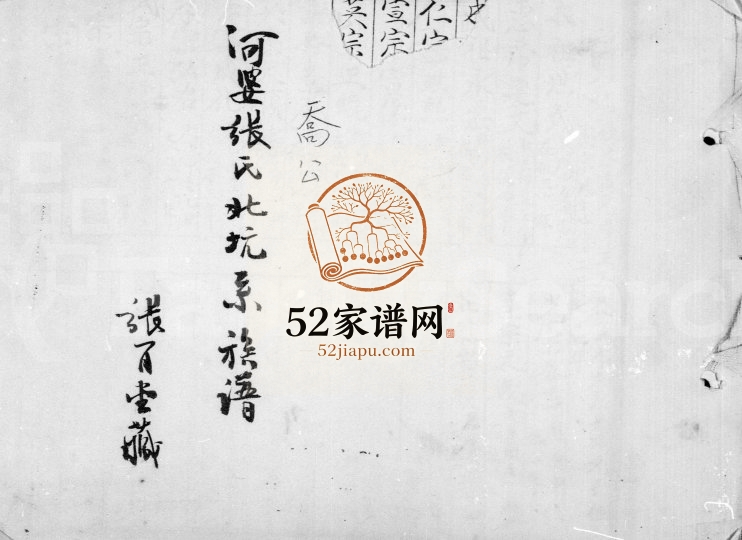 仁宗
宣宗
英宗
喬公
河婆張氏北坑系族譜
張百忠藏
52家谱网
52jiapu.com